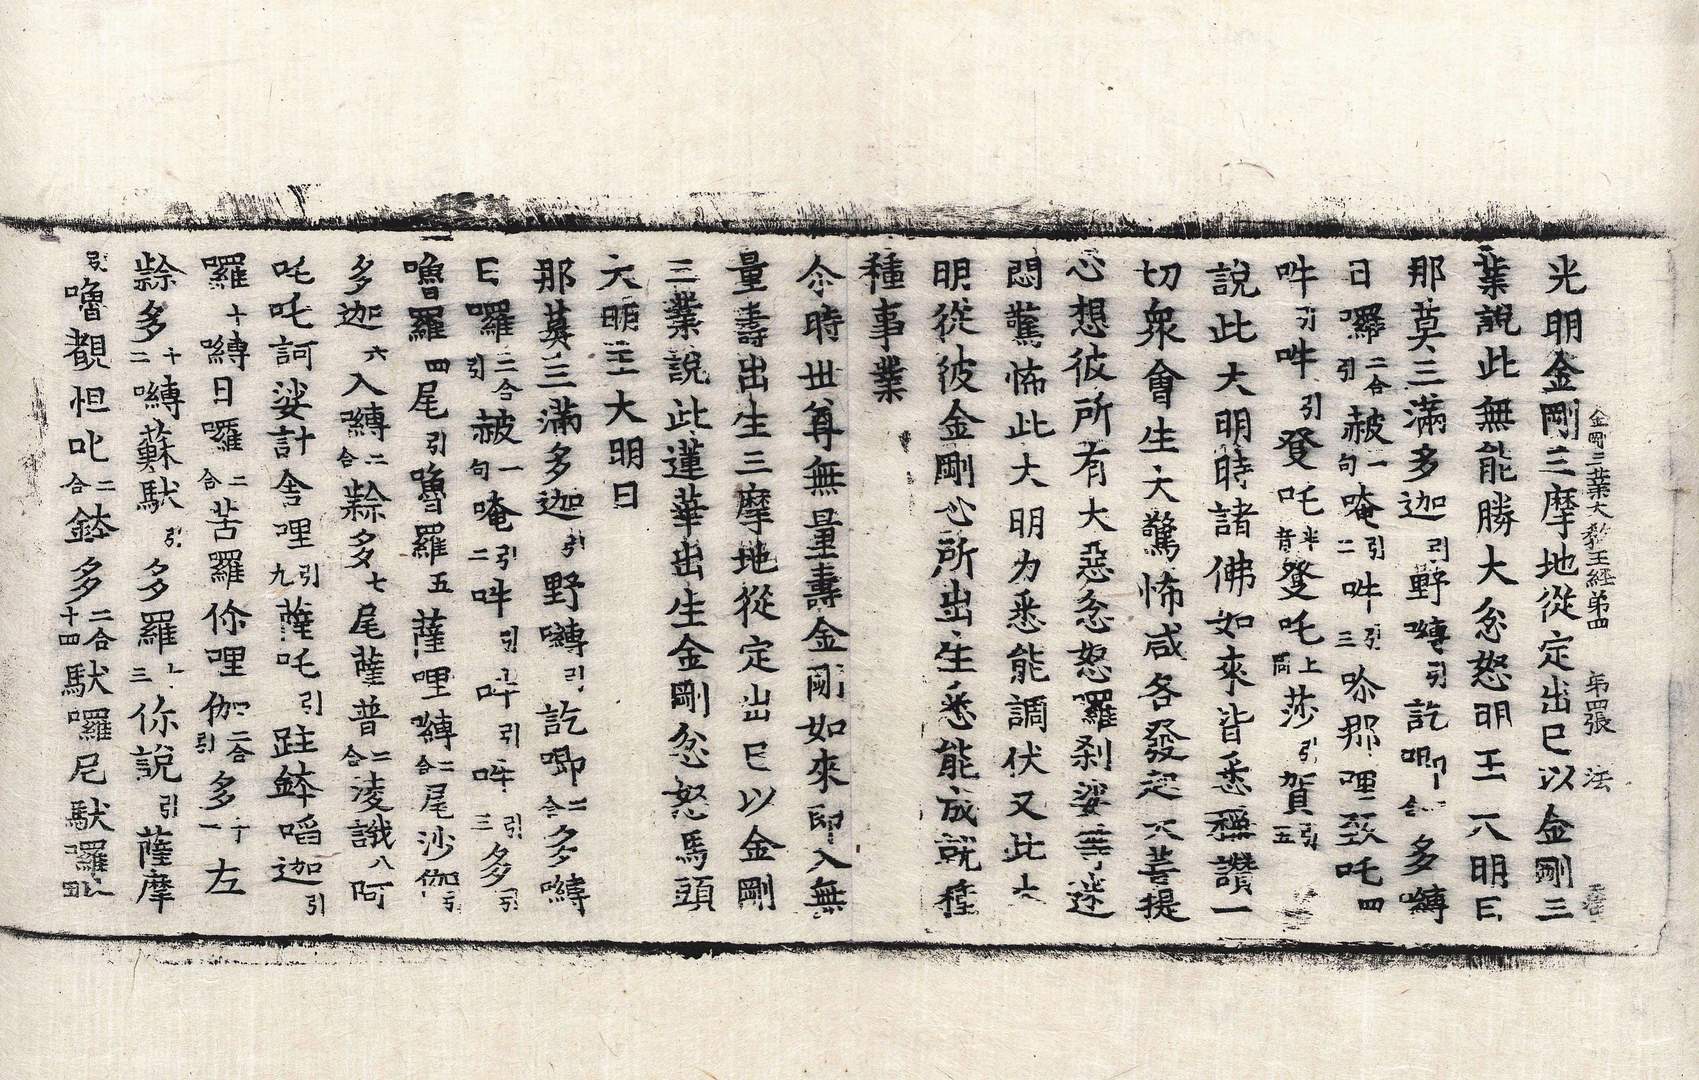 金剛三業大教王經第四　第四張　法
光明金剛三摩地從定出已以金剛三
業說此無能勝大忿怒明王大明曰
那莫三滿多迦引野嚩引訖唧二合多嚩
日囉二合引赦一句唵引二吽引三唥那哩致吒四
吽引吽引發吒半音發吒上同莎引賀引五
說此大明時諸佛如來皆悉稱讚一
切衆會生大驚怖咸各發起大菩提
心想彼所有大惡忿怒羅刹娑等迷
悶驚怖此大明力悉能調伏又此大
明從彼金剛心所出生悉能成就種
種事業
尒時世尊無量壽金剛如來即入無
量壽出生三摩地從定出已以金剛
三業說此蓮華出生金剛忿怒馬頭
大明王大明曰
那莫三滿多迦引野嚩引訖唧二合多嚩
日囉二合引赦一句唵引二吽引吽引吽引三多引
嚕羅四尾引嚕羅五薩哩嚩二合尾沙伽引
多迦六入嚩二合羅多七尾薩普二合淩誐八阿
吒吒訶娑計舍哩引九薩吒引跓鉢嚪迦引
羅十嚩日囉二合苦羅你哩伽二合引多十一左
羅多十二嚩蘇馱引多羅上三你說引薩摩
引嚕覩怛叱二合鉢多二合十四馱囉尼馱囉